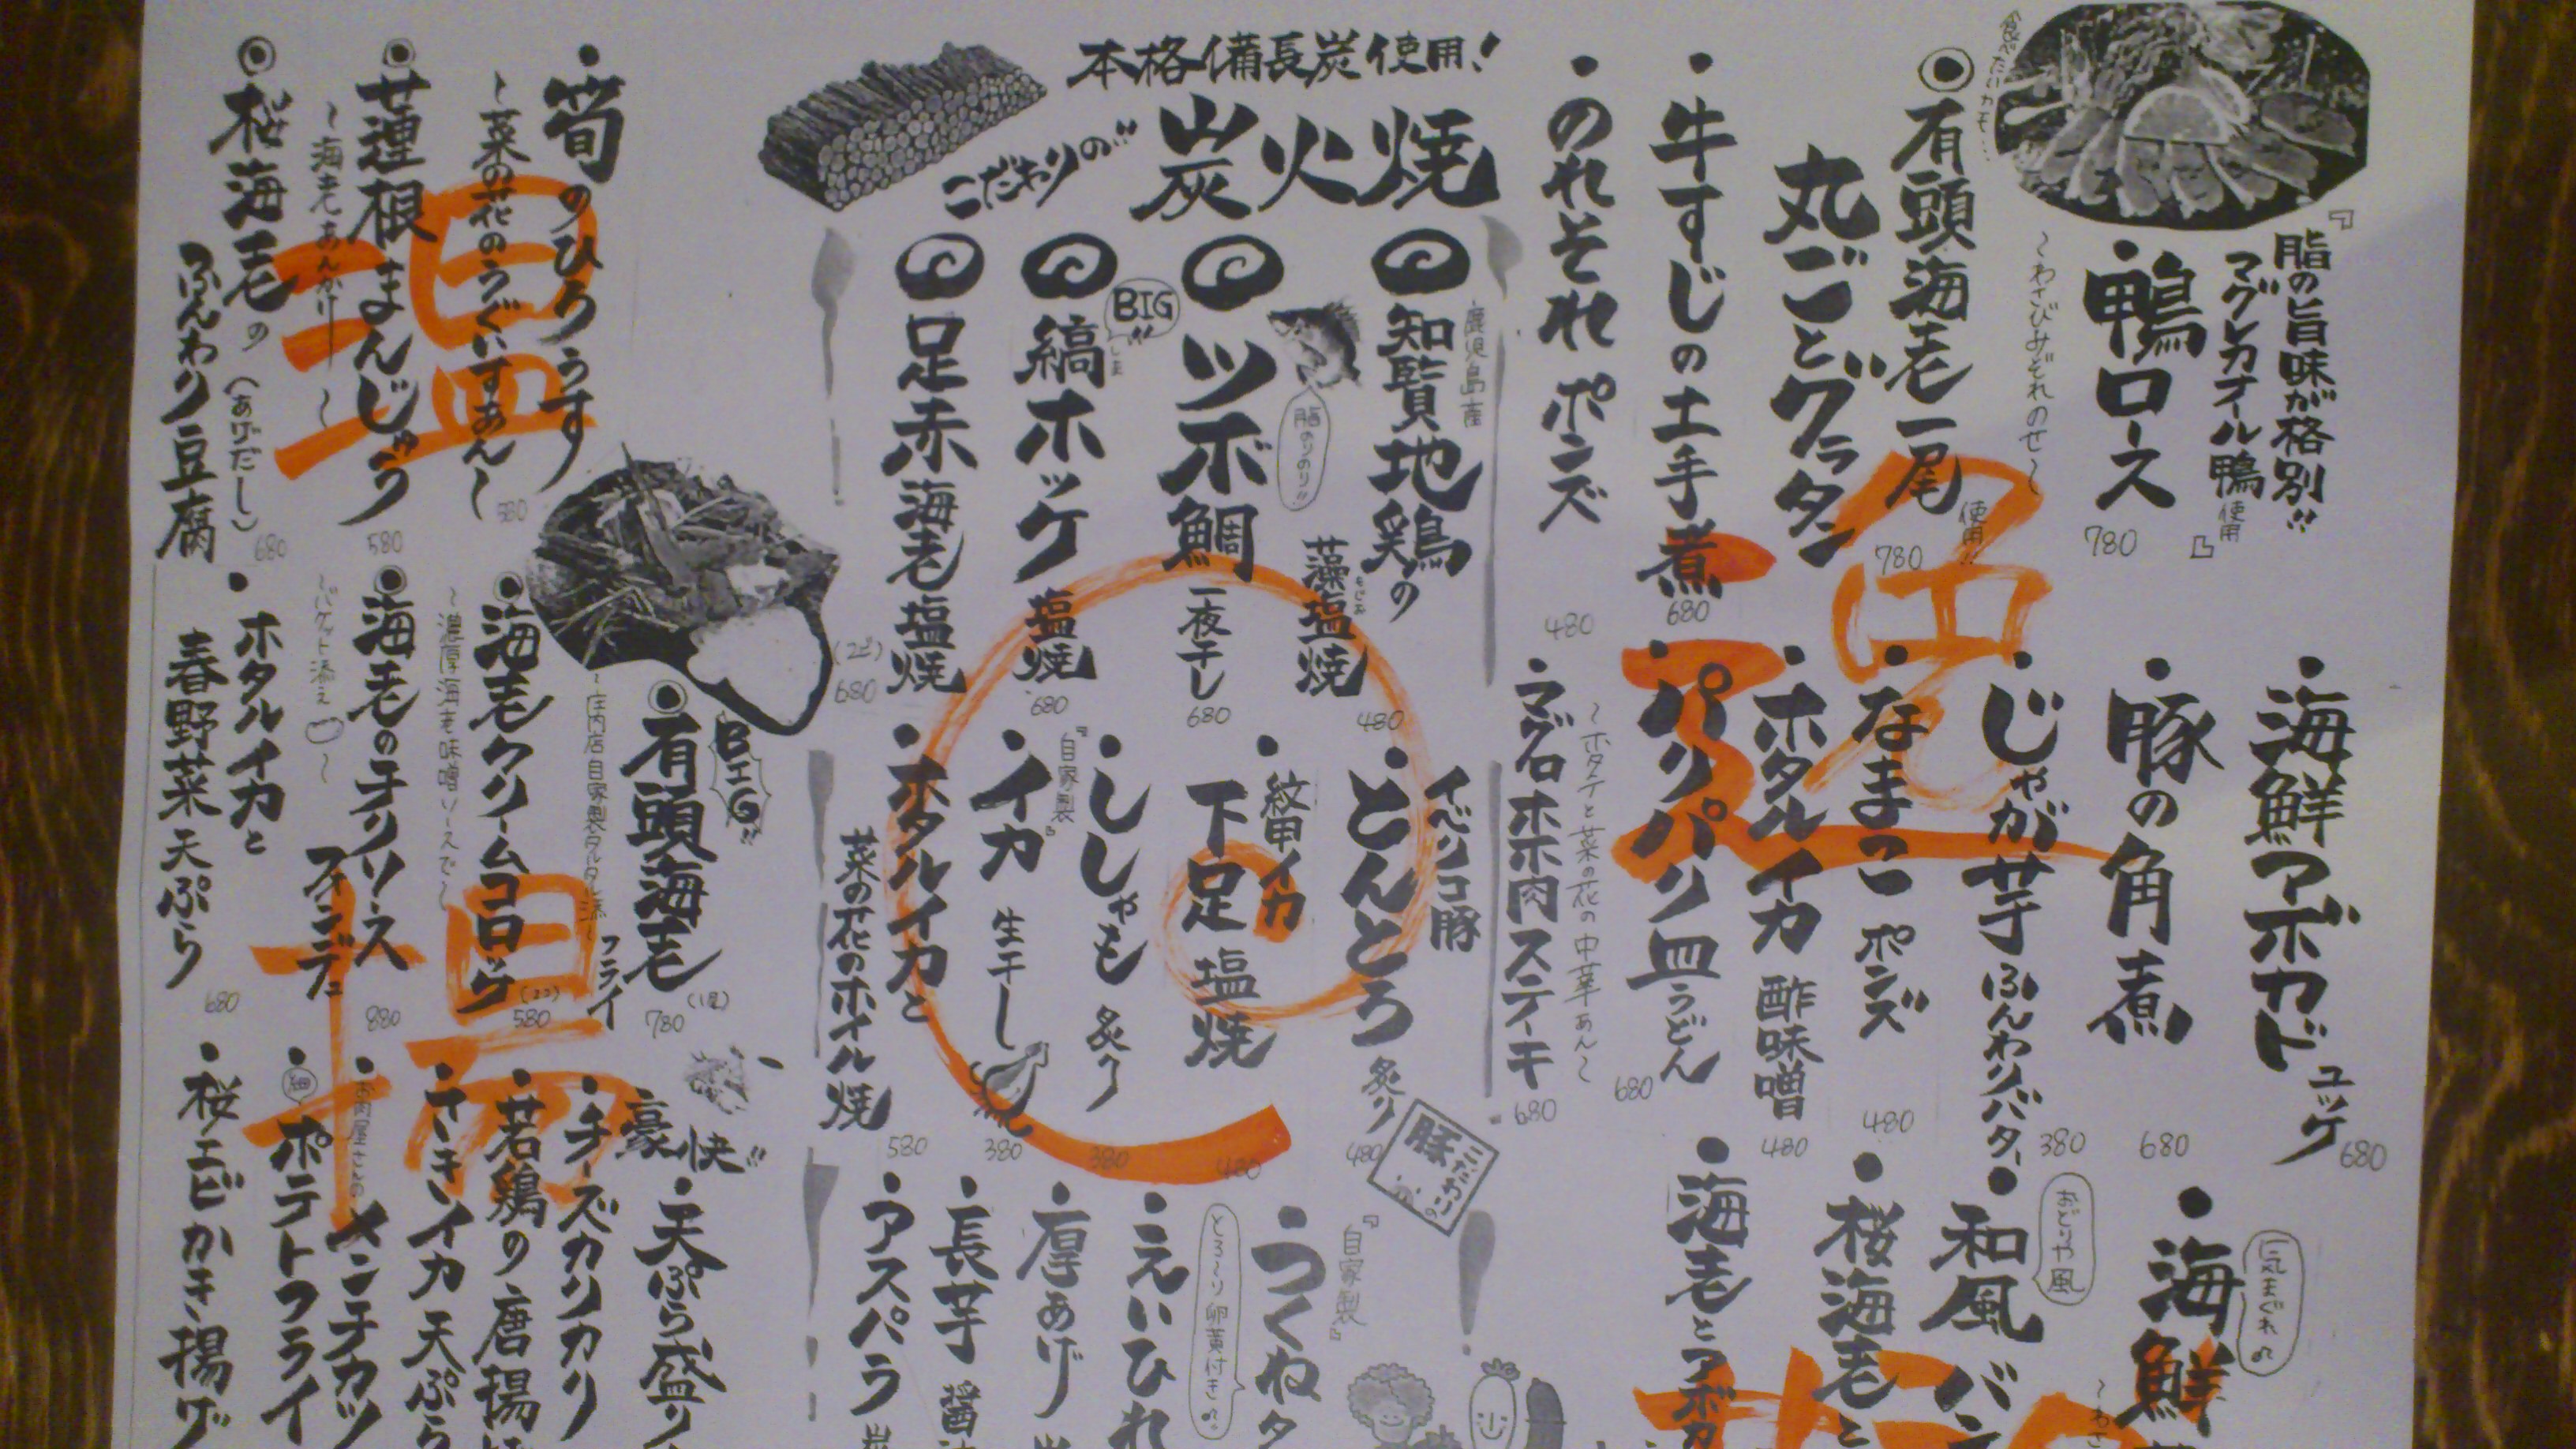 『脂の旨味が格別!!
マグレカナール鴨使用』
・鴨ロース
〜わさびみぞれのせ〜
780
有頭海老一尾使用!!
丸ごとグラタン
780
・牛すじの土手煮
680
・のれそれ ポンズ
480
・海鮮アボカドユッケ
680
・豚の角煮
680
・じゃが芋ふんわりバター
380
・なまこ ポンズ
480
・ホタルイカ 酢味噌
480
・パリパリ皿うどん
〜ホタテと菜の花の中華あん〜
680
・マグロホホ肉ステーキ
680
気まぐれの
・海鮮
おどりや風
・和風バ
・桜海老と
・海老とアボカ
本格備長炭使用!
こだわりの
炭火焼
鹿児島産
知覧地鶏の
藻塩焼
もしお
480
ツボ鯛 一夜干し
脂のりのり!!
680
BIG!!
縞ホッケ 塩焼
しま
680
足赤海老 塩焼
(2ピ)
680
イベリコ豚
・とんとろ 炙り
480
こだわりの
豚
・紋甲イカ
下足 塩焼
480
・ししゃも 炙り
380
『自家製』
・イカ 生干し
380
・ホタルイカと
菜の花のホイル焼
580
『自家製』
・つくね
とろ〜り卵黄付き
・えいひれ
・厚あげ
・長芋 醤
・アスパラ
温
・筍のひろうす
〜菜の花のうぐいすあん〜
580
蓮根まんじゅう
〜海老あんかけ〜
580
桜海老の
ふんわり豆腐
(あげだし)
680
BIG!!
有頭海老フライ
〜庄内店自家製タルタル添え〜
(1尾)
780
海老クリームコロッケ
〜濃厚海老味噌ソースで〜
(2コ)
580
海老のチリソース
〜バケット添え〜
880
・ホタルイカと
春野菜 天ぷら
680
揚
豪快!!
・天ぷら盛り
・チーズカリカリ
・若鶏の唐揚
・さきイカ天ぷら
お肉屋さんの
・メンチカツ
・ポテトフライ
・桜エビかき揚げ